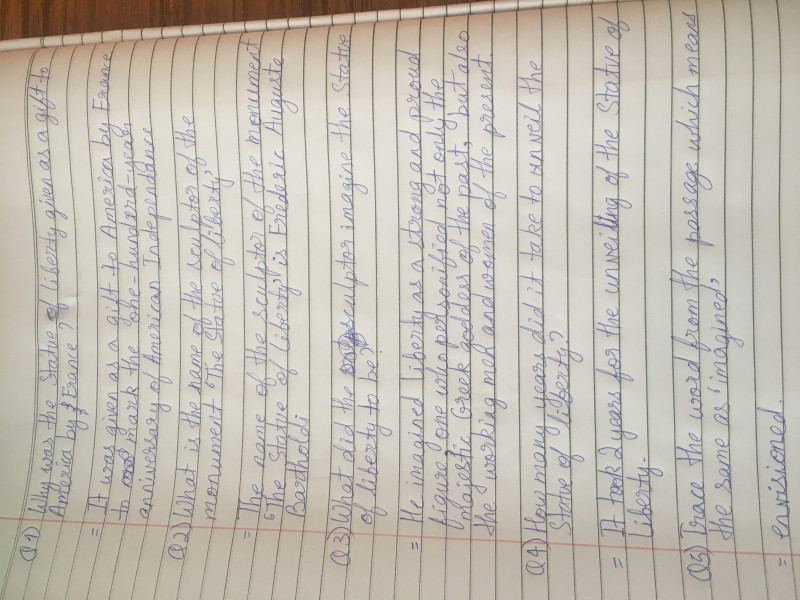 Q1) Why was the Statue of liberty given as a gift to
America by France?
= It was given as a gift to America by France
to mark the one-hundred-year
anniversary of American Independance
Q2) What is the name of the sculptor of the
monument "The Statue of liberty"
= The name of the sculptor of the monument
"The Statue of liberty" is Frederic Auguste
Bartholdi
Q3) What did the sculptor imagine the Statue
of liberty to be?
= He imagined liberty as a strong and proud
figure, one who personified not only the
majestic Greek goddess of the past, but also
the working men and women of the present.
Q4) How many years did it take to unveil the
Statue of liberty?
= It took 2 years for the unveiling of the Statue of
liberty.
Q5) Trace the word from the passage which means
the same as 'imagined'
= envisioned.